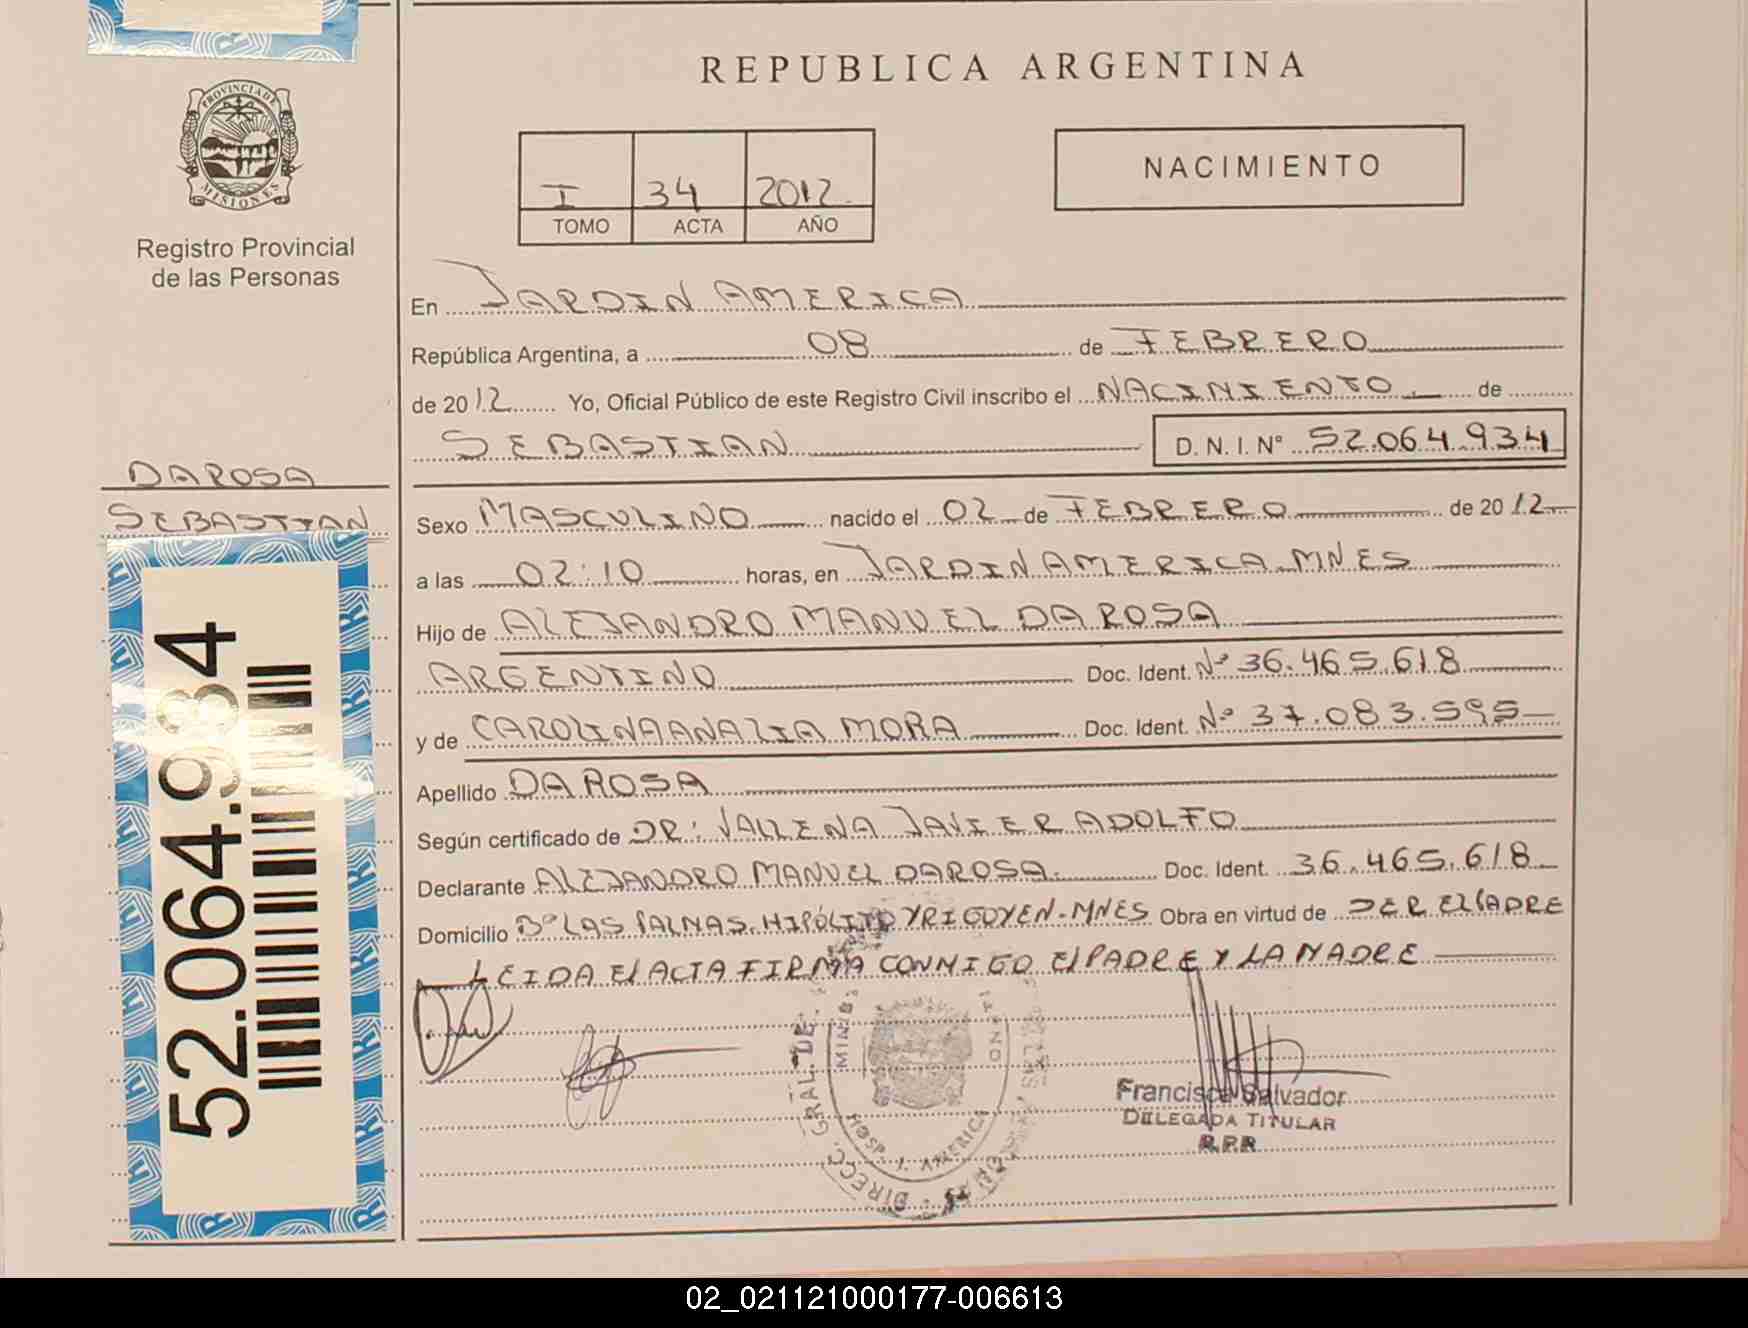 REPUBLICA ARGENTINA
PROVINCIA DE
MISIONES
Registro Provincial
de las Personas
I 34 2012.
TOMO ACTA AÑO
NACIMIENTO
En JARDIN AMERICA
República Argentina, a 08 de FEBRERO
de 2012 Yo, Oficial Público de este Registro Civil inscribo el NACIMIENTO de
SEBASTIAN D. N. I. Nº 52.064.934
DA ROSA
SEBASTIAN
52.064.934
Sexo MASCULINO nacido el 02 de FEBRERO de 2012
a las 02:10 horas, en JARDIN AMERICA MNES
Hijo de ALEJANDRO MANUEL DA ROSA
ARGENTINO Doc. Ident. Nº 36.465.618
y de CAROLINA ANALIA MORA Doc. Ident. Nº 37.083.595
Apellido DA ROSA
Según certificado de DR: VALLENA JAVIER ADOLFO
Declarante ALEJANDRO MANUEL DA ROSA. Doc. Ident. 36.465.618
Domicilio Bº LAS PALMAS. HIPÓLITO YRIGOYEN-MNES Obra en virtud de SER EL PADRE
LEIDA EL ACTA FIRMA CONMIGO EL PADRE Y LA MADRE
DIREC. GRAL. DE
HOSP. J. AMERICA
Francisca Salvador
DELEGADA TITULAR
R.P.P.
02_021121000177-006613